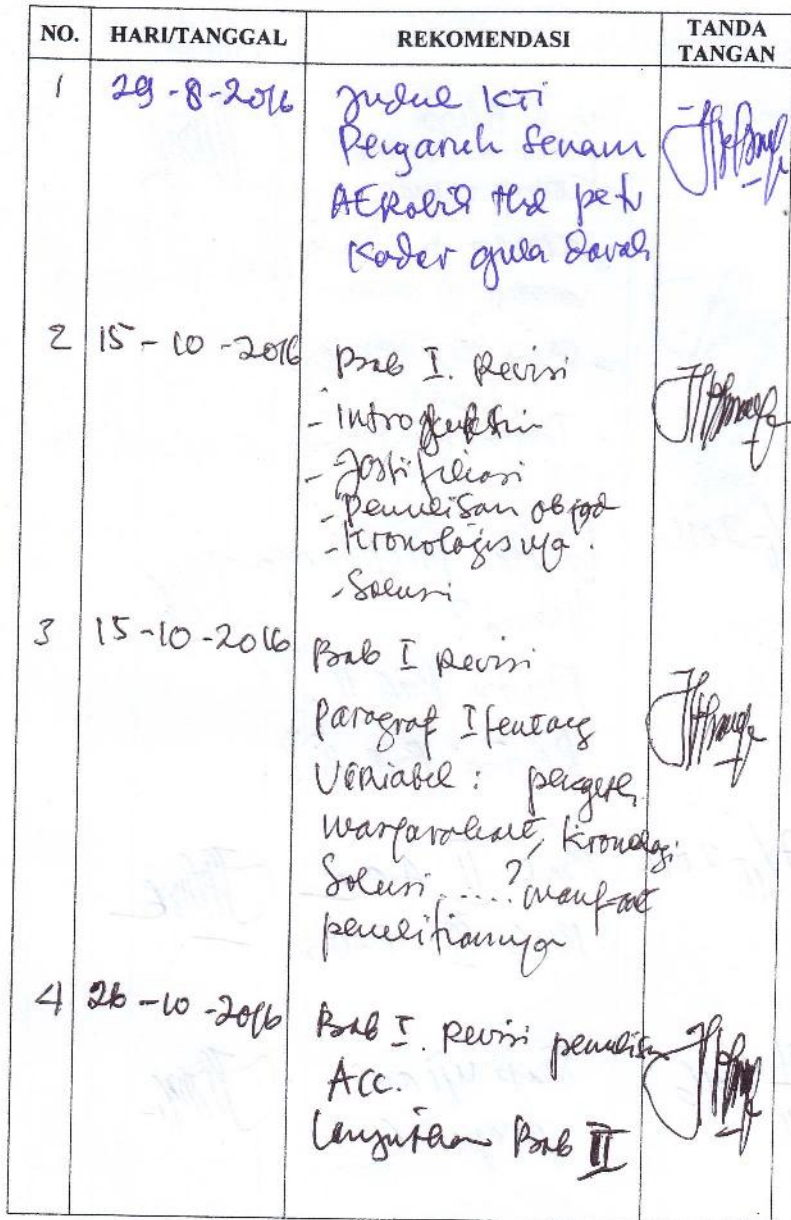 NO. HARI/TANGGAL REKOMENDASI TANDA TANGAN
1 29-8-2016 Judul KTI
Pengaruh Senam
AERobik thd
Kadar gula darah
2 15-10-2016 Bab I. Revisi
-
- Justifikasi
- Penulisan
- Kronologisnya.
- Solusi
3 15-10-2016 Bab I Revisi
Paragraf I tentang
Variabel :
Kronologi
Solusi .....? manfaat
penelitiannya
4 26-10-2016 Bab I. Revisi penulisan
Acc.
Lanjutkan Bab II